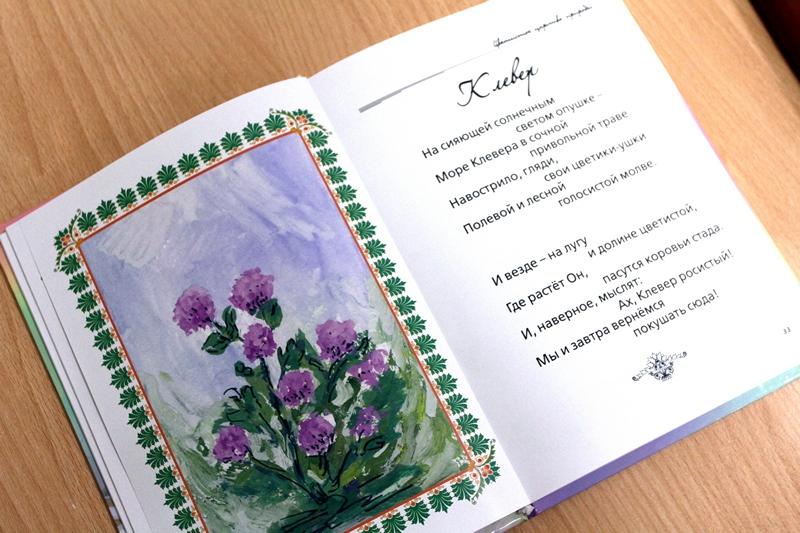 Цветочное царство природы
Клевер
На сияющей солнечным
светом опушке –
Море Клевера в сочной
привольной траве
Навострило, гляди,
свои цветики-ушки
Полевой и лесной
голосистой молве.
И везде – на лугу
и долине цветистой,
Где растёт Он,
пасутся коровьи стада.
И, наверное, мыслят:
Ах, Клевер росистый!
Мы и завтра вернёмся
покушать сюда!
33